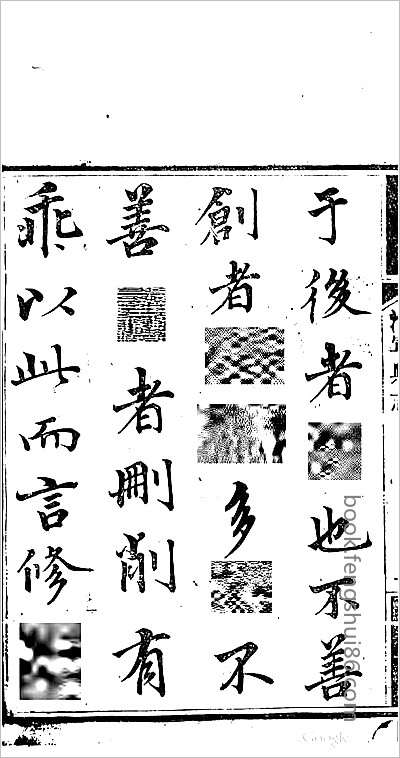 于後者也不善
創者多不
善者刪削有
乖以此而言修
book.fengshui86.com
Google